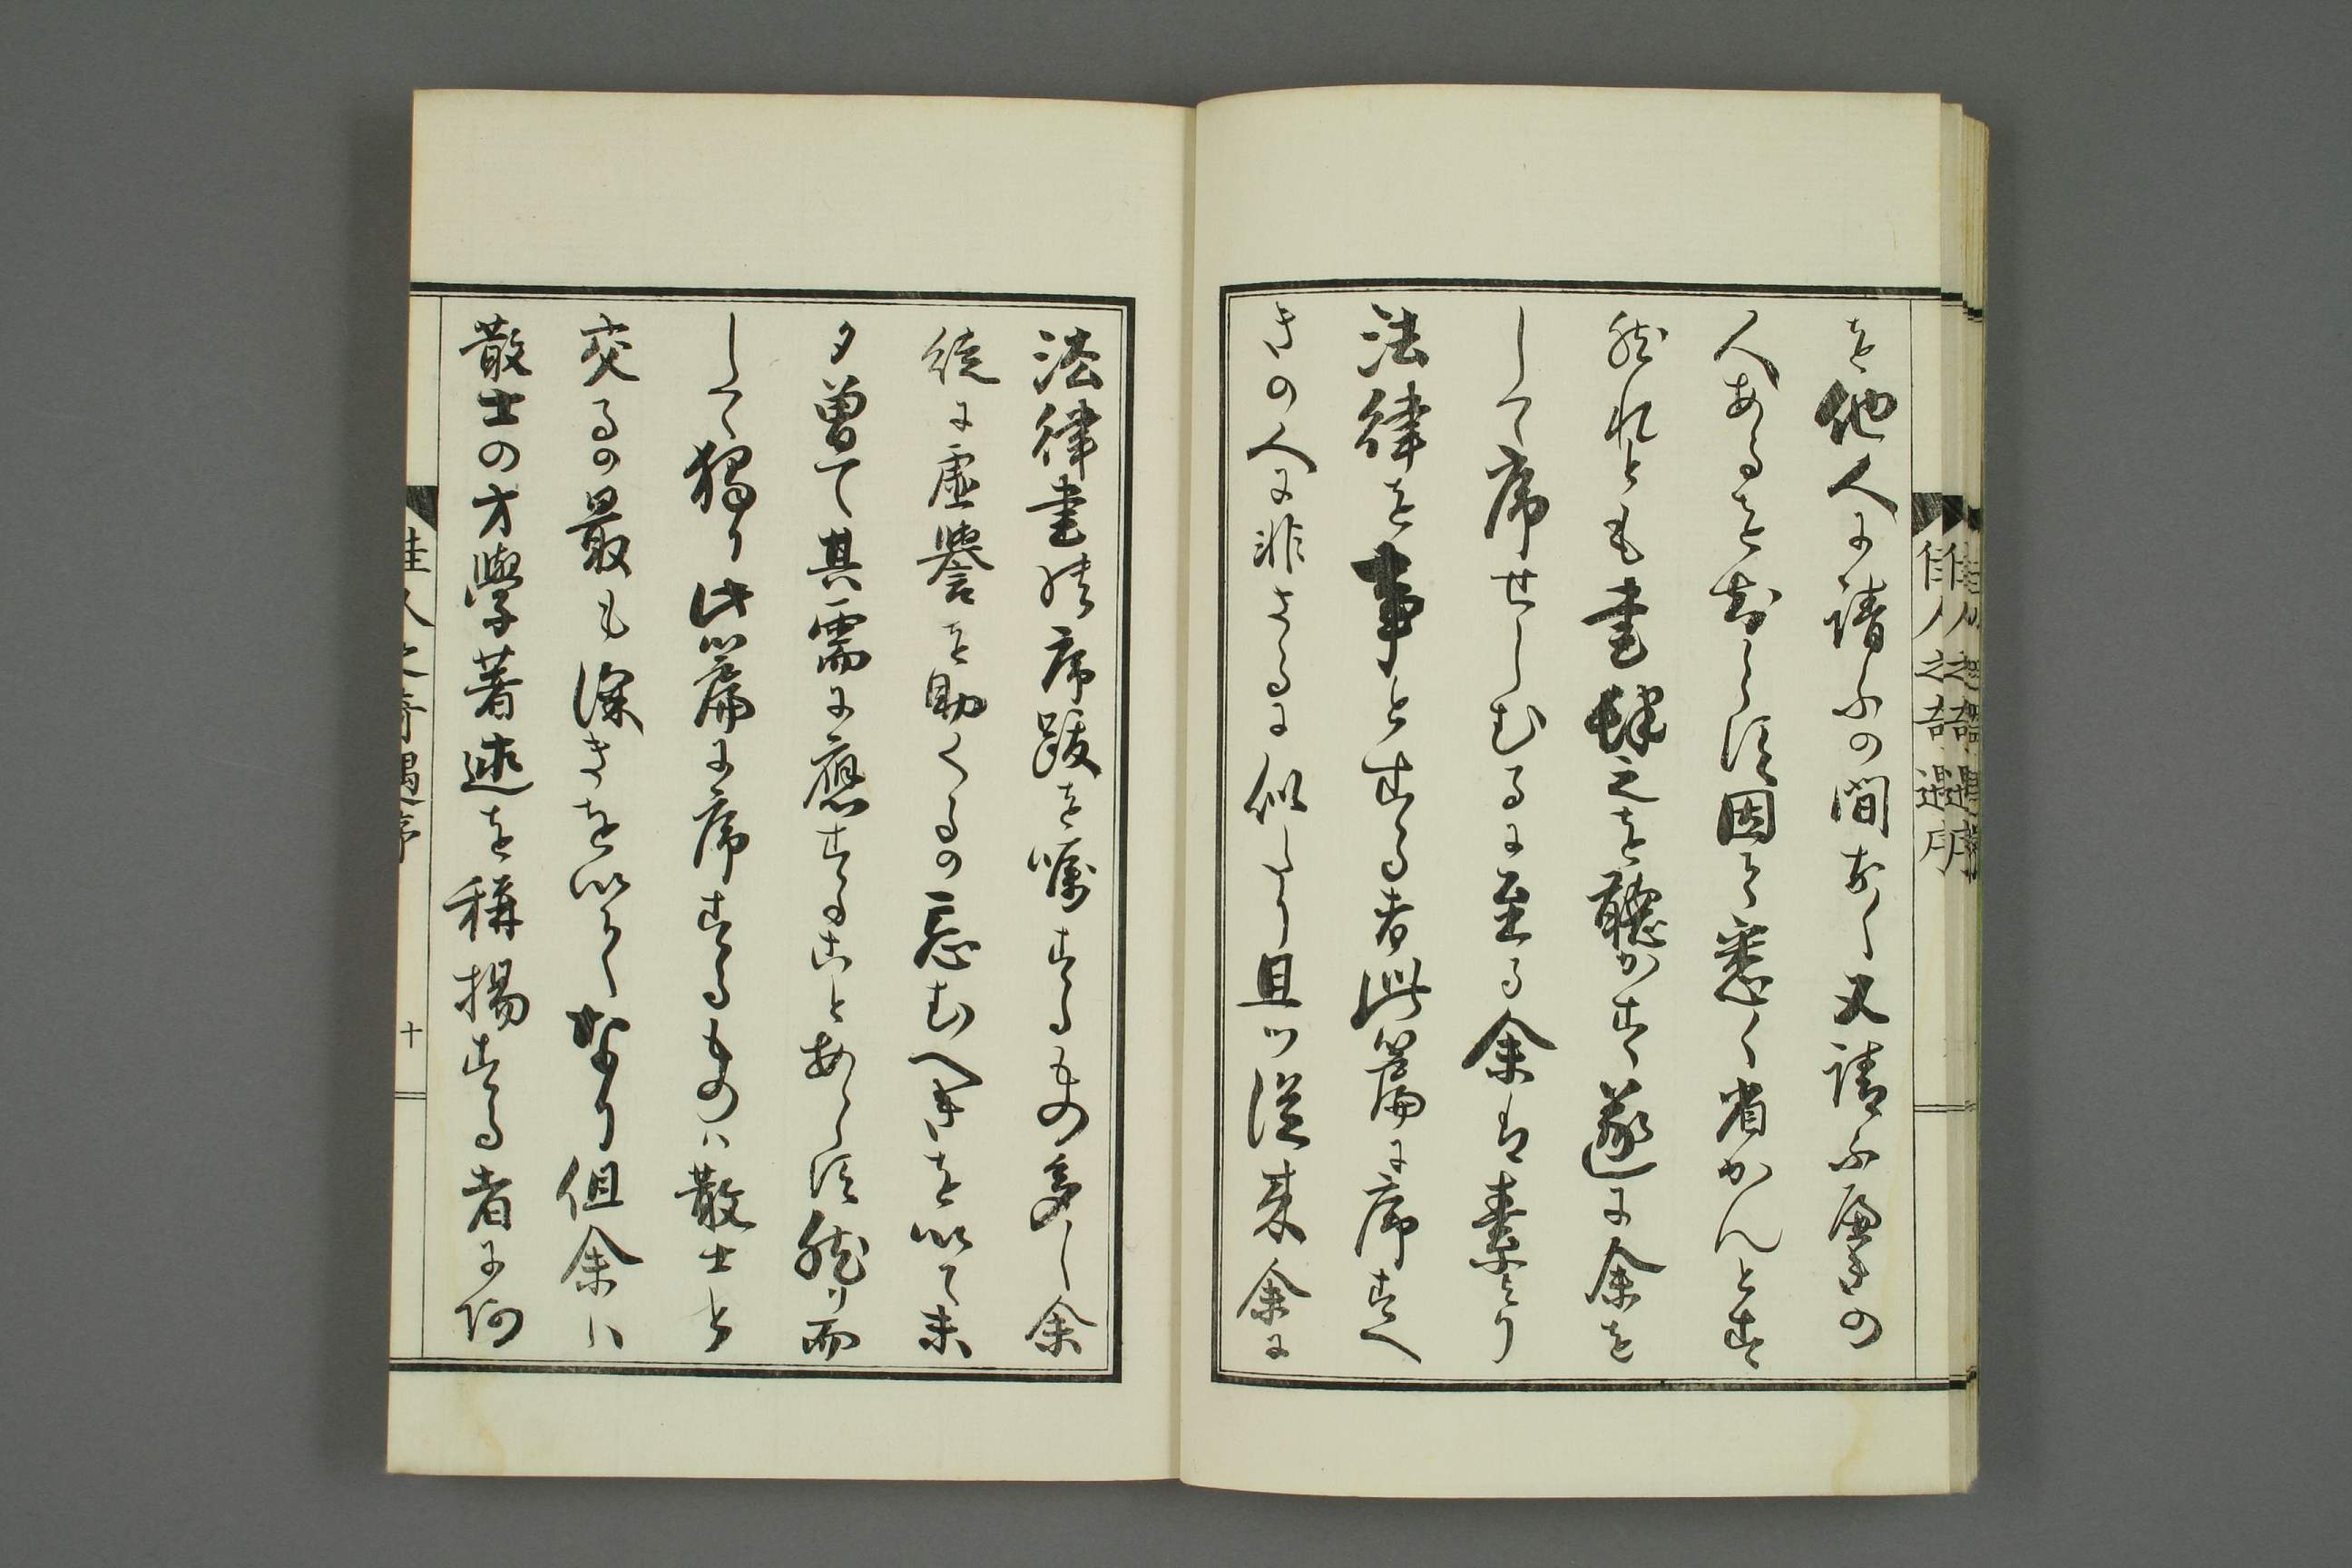 を他人に請ふの間あく又請ふ可きの
人あるを知らす因て悉く省かんとす
然れとも書肆之を聽かす遂に余を
して序せしむるに至る余は素より
法律を事とする者此篇に序すへ
きの人に非さるに似たり且ツ從来余に
法律書の序跋を囑するもの多し余
徒に虛譽を助くるの忌むへきを以て未
タ曽て其需に應することあらす然り而
して獨り此篇に序するものハ散士と
交るの最も深きを以てなり但余ハ
散士の才學著述を稱揚する者に阿
佳人之奇遇序
佳人之奇遇序
十